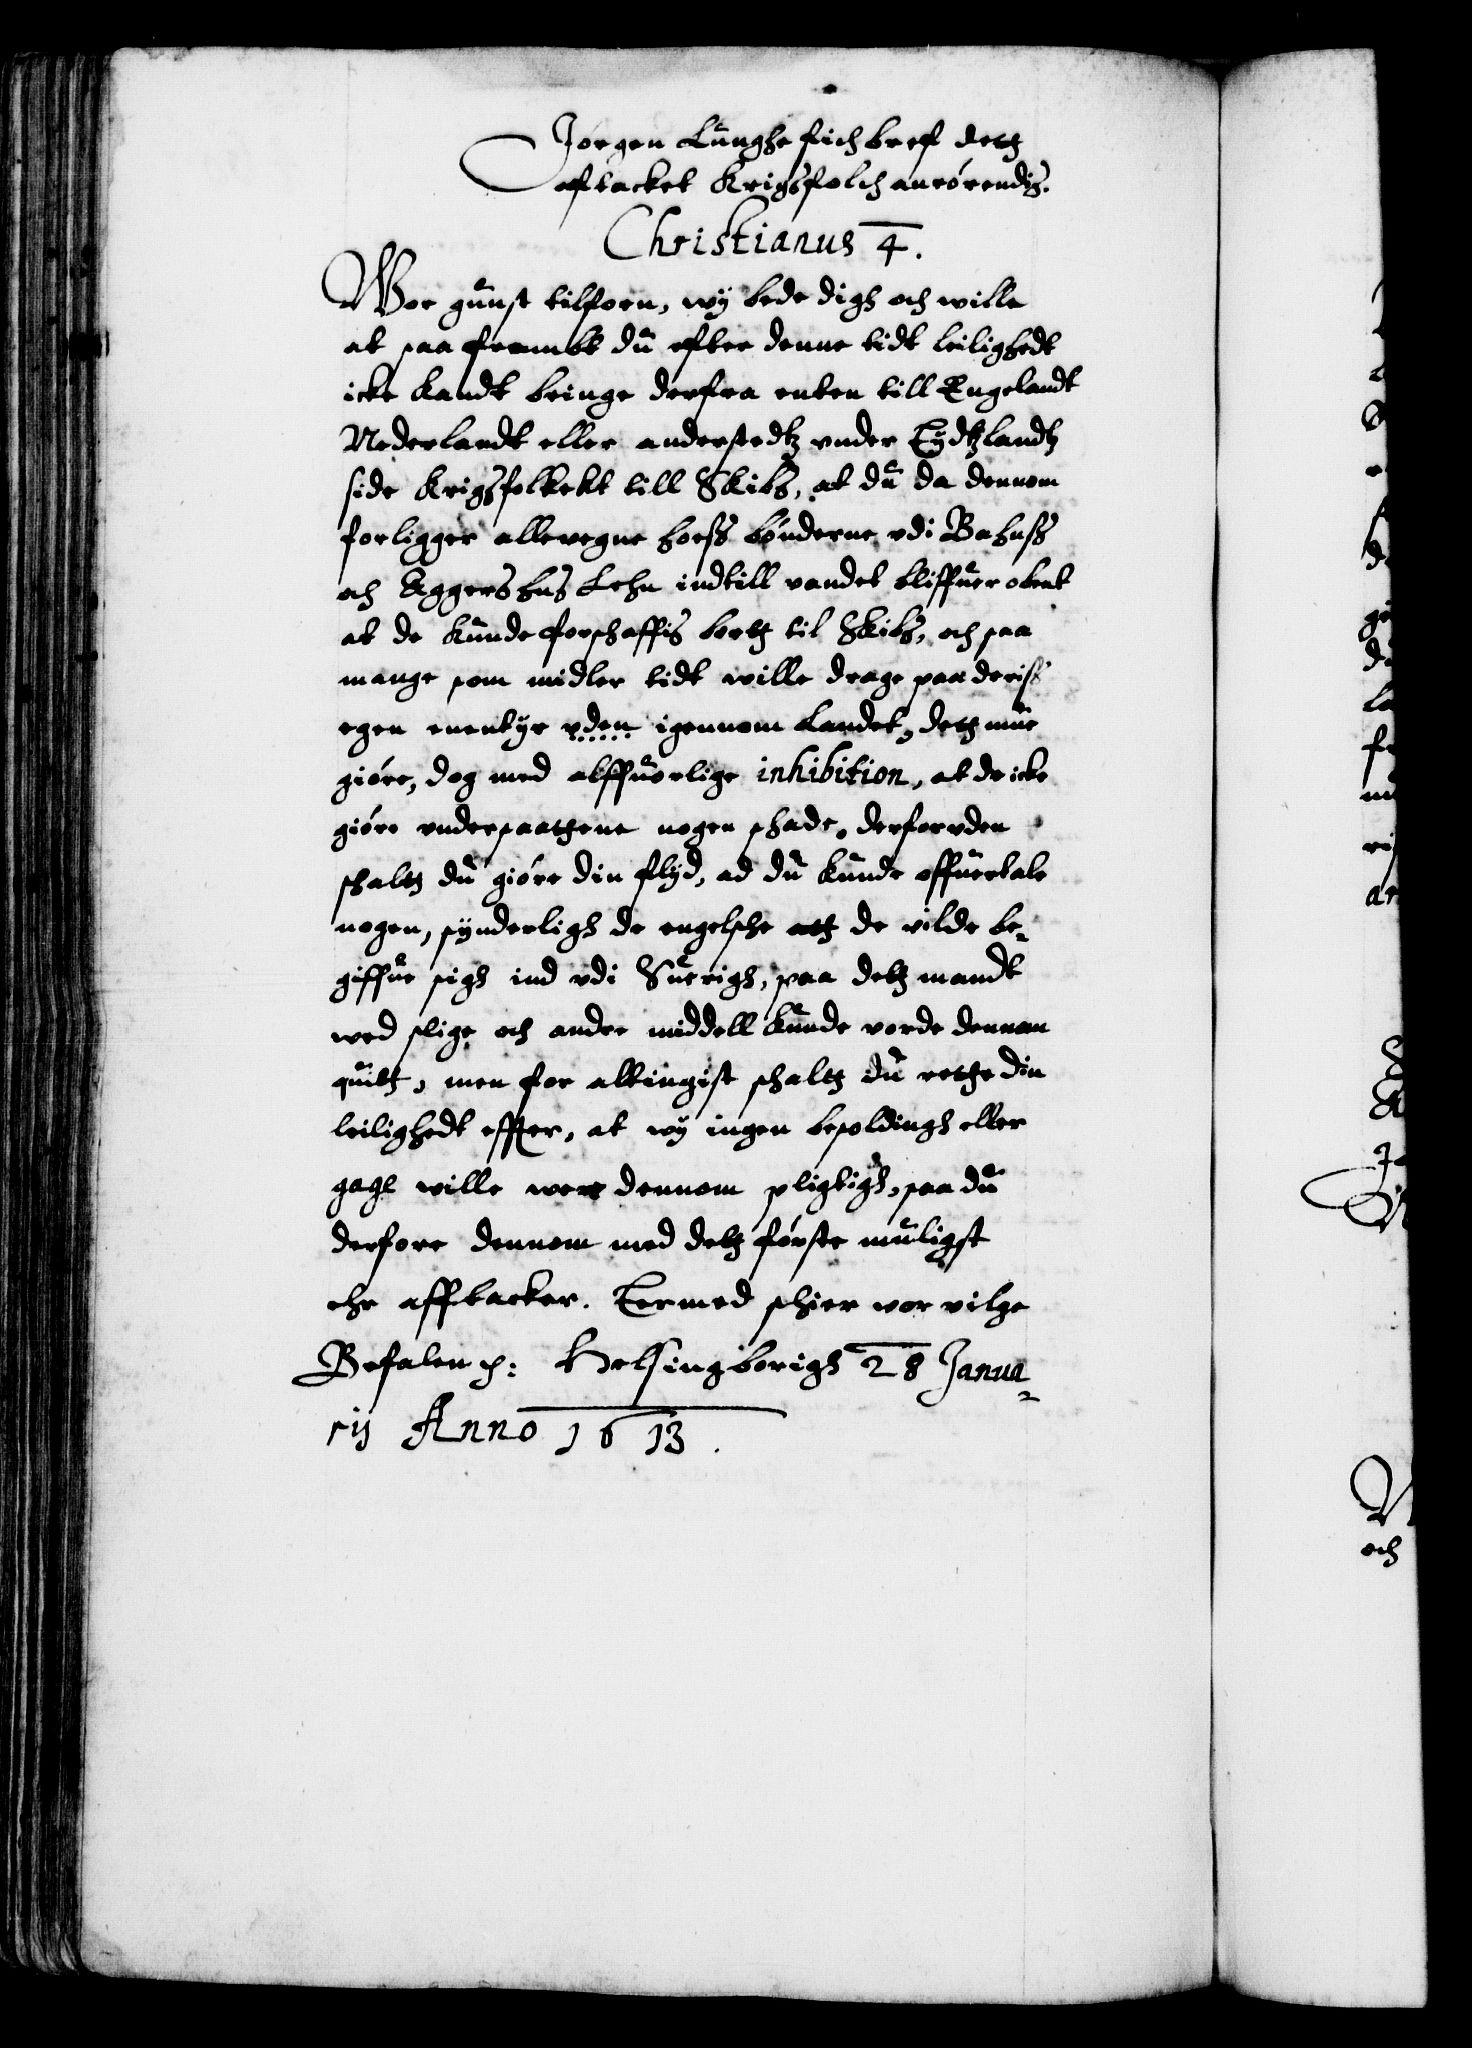 Jörgen Lunghe fich bref detz
aftacket Krigsfolch anrörendis.
Christianus 4.
Wor gunst tilforn, wij bede digh och wille
at saa frambt du efter denne tidt leilighedt
icke kandt bringe derfra enten till Engelandt
Nederlandt eller anderstedtz vnder Tydtzlandtz
side Krigsfolkekt till Skibs, at du da dennom
forligger allevegne hoess bönderne vdi Bahuss
och Aggershus Lehn indtill vandet bliffuer obent
at de kunde forschaffis bortz til Skibs, och saa
mange som midler tidt wille drage paa deris
egen euentyr vden igennom Landet, detz mue
giöre, dog med alffuorlige inhibition, at de icke
giöre vndersaathene nogen schade, derforvden
schaltz du giöre din flijd, ad du kunde offuertale
nogen, synderligh de engelsche atz de vilde be-
giffue sigh ind vdi Suerigh, paa detz mandt
wed slige och andre middell kunde vorde dennom
quitz, men for altingist schaltz du rethe din
leilighedt effter, at wij ingen besoldingh eller
gage wille were dennom pligtigh, saa du
derfore dennom med detz förste muligst
ehr afftacker. Termed schier wor vilge
Befalendis: Helsingborigh 28 Janua-
rij Anno 1613.